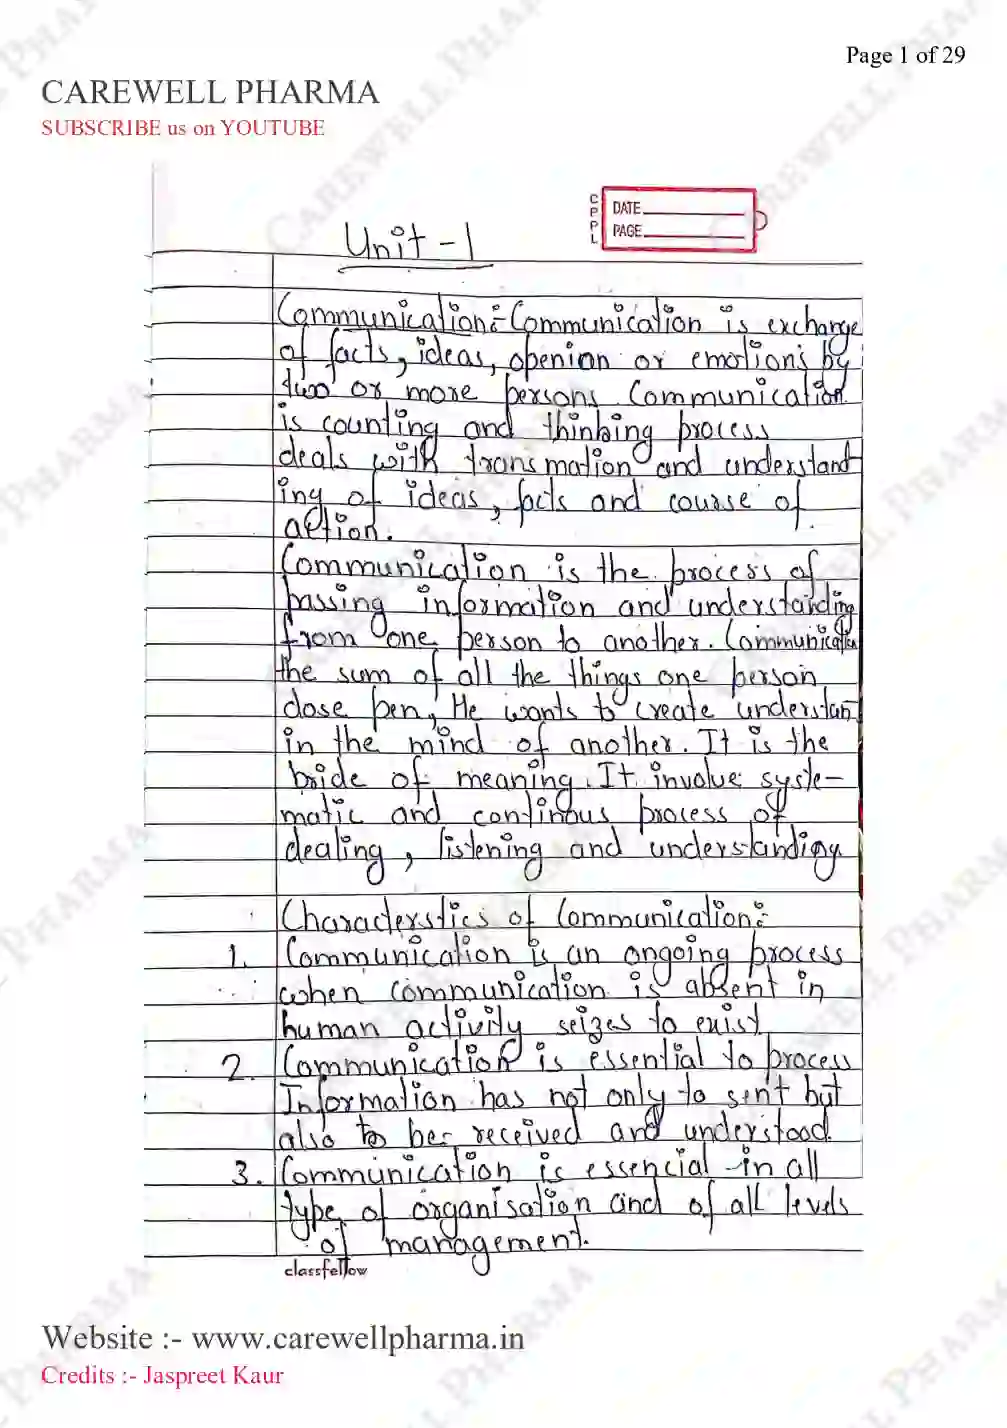 Page 1 of 29
CAREWELL PHARMA
SUBSCRIBE us on YOUTUBE
CPPL
DATE
PAGE
Unit - 1
Communication:- Communication is exchange
of facts, ideas, openion or emotions by
two or more persons Communication
is counting and thinking process
deals with transmation and understand
ing of ideas, facts and course of
action.
Communication is the process of
passing information and understanding
from one person to another. Communication
the sum of all the things one person
dose pen, He wants to create understan
in the mind of another. It is the
bride of meaning. It involve syste-
matic and continous process of
dealing, listening and understanding
Characterstics of Communication:-
1. Communication is an ongoing process
when communication is absent in
human activity seizes to exist
2. Communication is essential to process
Information has not only to sent but
also to be received and understood.
3. Communication is essencial in all
type of organisation and of all levels
of management.
classfellow
Website :- www.carewellpharma.in
Credits :- Jaspreet Kaur